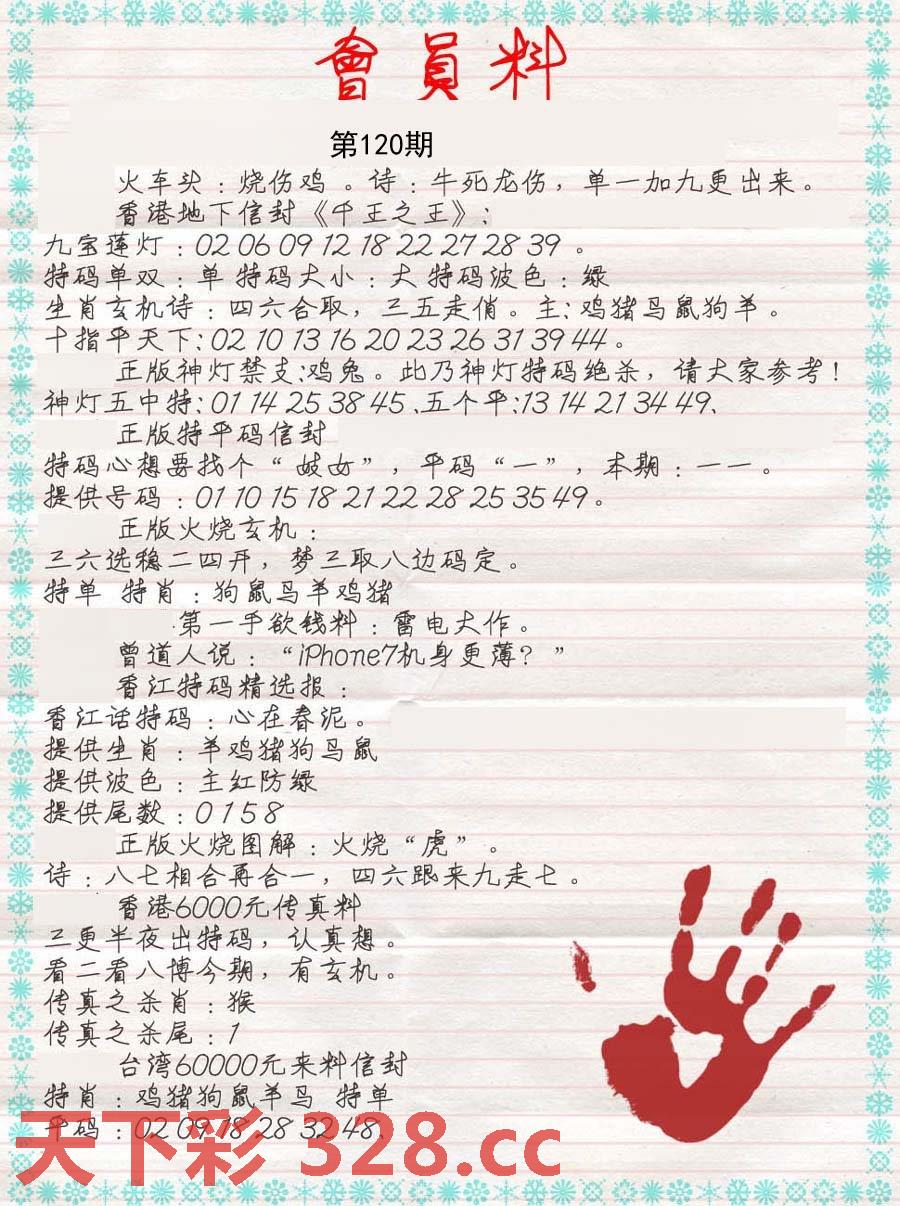 會員料
第120期
火车头：烧伤鸡 。诗：牛死龙伤，单一加九更出来。
香港地下信封《千王之王》：
九宝莲灯：02 06 09 12 18 22 27 28 39 。
特码单双：单 特码大小：大 特码波色：绿
生肖玄机诗：四六合取，三五走俏。主: 鸡猪马鼠狗羊。
十指平天下: 02 10 13 16 20 23 26 31 39 44 。
正版神灯禁支:鸡兔。此乃神灯特码绝杀，请大家参考！
神灯五中特: 01 14 25 38 45 、五个平:13 14 21 34 49、
正版特平码信封
特码心想要找个“ 妓女”，平码“一”，本期：一一。
提供号码：01 10 15 18 21 22 28 25 35 49。
正版火烧玄机：
三六选稳二四开，梦三取八边码定。
特单 特肖：狗鼠马羊鸡猪
第一手欲钱料：雷电大作。
曾道人说：“iPhone7机身更薄？”
香江特码精选报：
香江话特码：心在春泥。
提供生肖：羊鸡猪狗马鼠
提供波色：主红防绿
提供尾数：0 1 5 8
正版火烧图解：火烧“虎”。
诗：八七相合再合一，四六跟来九走七。
香港6000元传真料
三更半夜出特码，认真想。
看二看八博今期，有玄机。
传真之杀肖：猴
传真之杀尾：1
台湾60000元来料信封
特肖：鸡猪狗鼠羊马 特单
平码：02 09 18 28 32 48、
天下彩 328.cc